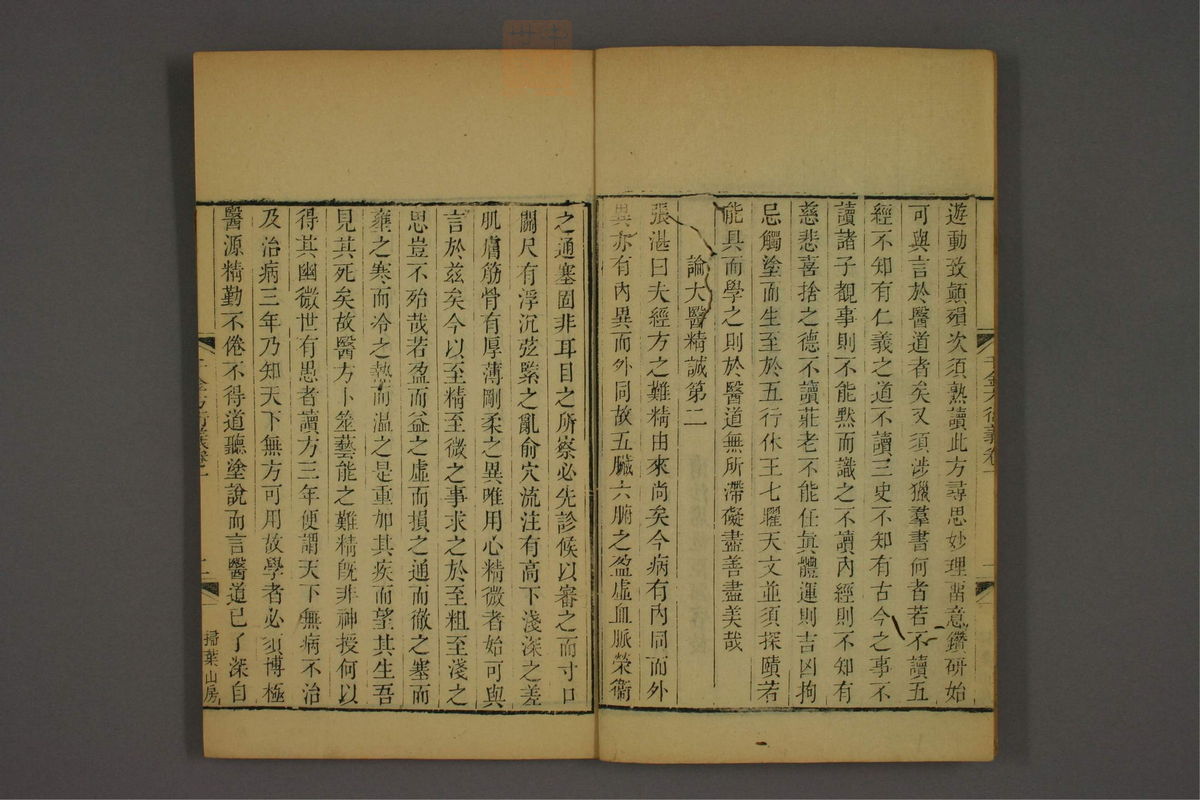 遊動致顛殞次須熟讀此方尋思妙理畱意鑽研始
可與言於醫道者矣又須涉獵羣書何者若不讀五
經不知有仁義之道不讀三史不知有古今之事不
讀諸子覩事則不能黙而識之不讀內經則不知有
慈悲喜捨之德不讀莊老不能任眞體運則吉凶拘
忌觸塗而生至於五行休王七耀天文並須探賾若
能具而學之則於醫道無所滯礙盡善盡美哉
論大醫精誠第二
張湛曰夫經方之難精由來尚矣今病有內同而外
異亦有內異而外同故五臟六腑之盈虛血脈榮衞
之通塞固非耳目之所察必先診候以審之而寸口
關尺有浮沉弦緊之亂俞穴流注有高下淺深之差
肌膚筋骨有厚薄剛柔之異唯用心精微者始可與
言於茲矣今以至精至微之事求之於至粗至淺之
思豈不殆哉若盈而益之虛而損之通而徹之塞而
壅之寒而冷之熱而溫之是重加其疾而望其生吾
見其死矣故醫方卜筮藝能之難精旣非神授何以
得其幽微世有愚者讀方三年便謂天下無病不治
及治病三年乃知天下無方可用故學者必須博極
醫源精勤不倦不得道聽塗說而言醫道已了深自
掃葉山房